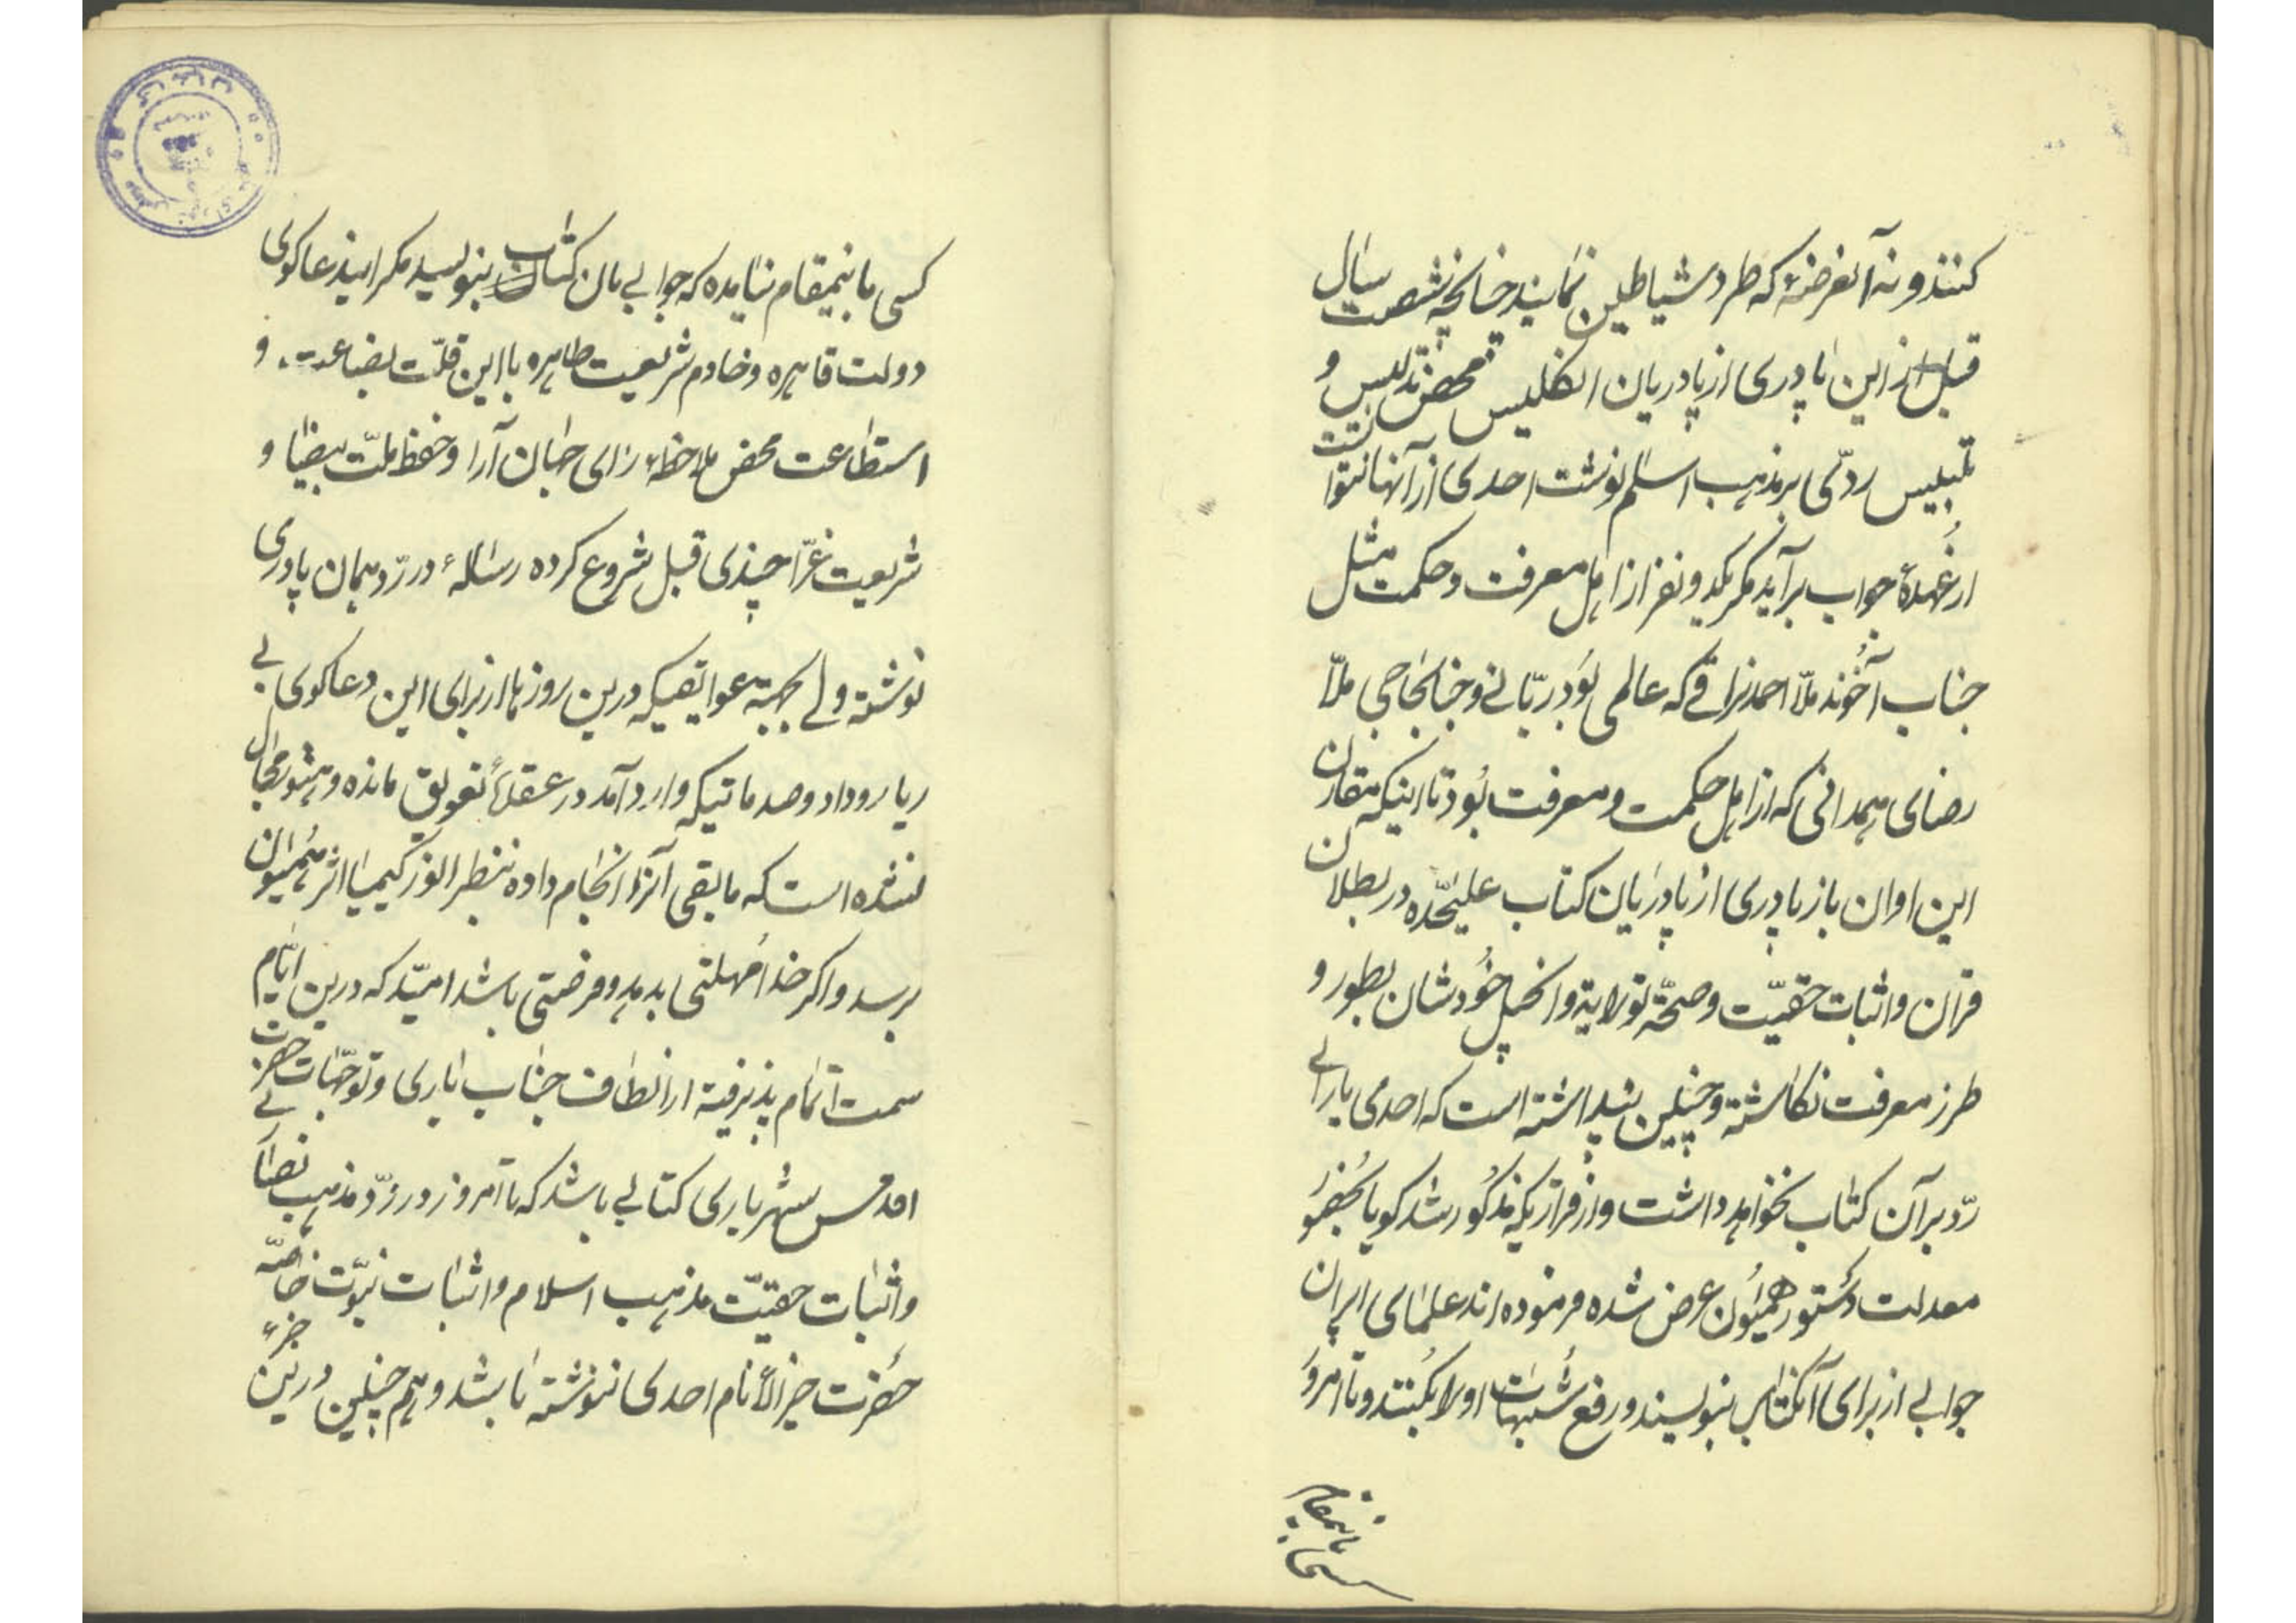 کنند و نه آنعرضهٔ که طرد شیاطین نمایند چنانچه شصت سال
قبل از این پادری از پادریان انگلیس محض تدلیس و
تلبیس ردّی بر مذهب اسلم نوشت احدی از آنها نتوانست
از عُهدهٔ جواب برآید مگر یکدو نفر از اهل معرفت و حکمت مثل
جناب آخُوند ملّا احمد نراقی که عالمی بُود ربّانی و جنابحاجی ملّا
رضای همدانی که از اهل حکمت و معرفت بُود تا اینکه مقارن
این اوان باز پادری از پادریان کتاب علیحّده در بطلان
قران و اثبات حقیّت و صحّة توراية و انجیل خُودشان بطور و
طرز معرفت نگاشته و چنین پنداشته است که احدی یارائی
ردّ بر آن کتاب نخواهد داشت و از قراریکه مذکُور شد کویا بحُضُور
معدلت دستور همیُون عرض شده فرموده‌اند علمای ایران
جوابی از برای آنکتاب بنویسند و رفع شُبهات او را بکُنند و تا امروز
کسی باینمقام
کسی باینمقام نیامده که جوابی بان کتاب بنویسد مکر ایندعاکوی
دولت قاهره و خادم شریعت طاهره با این قلّت بضاعت و
استطاعت محض ملاحظهٔ رای جهان آرا و حفظ ملّت بیضا و
شریعت غرّا چندی قبل شروع کرده رسالهٔ در ردّ همان پادری
نوشته ولی بجهة عوایقیکه درین روزها از برای این دعاکوی بی
ریا روداد و صدماتیکه وارد آمد در عقدهٔ تعویق مانده و هنوز مجال
نشده است که مابقی آنرا انجام داده بنظر انور کیمیا اثر همیُون
برسد و اکر خدا مُهلتی بدهد و فرصتی باشد امیّد که درین ایّام
سمت اتمام پذیرفته از الطاف جناب باری و توجّهات حضرت
اقدس شهریاری کتابی باشد که تا امروز در ردّ مذهب نصارا
و اثبات حقیّت مذهب اسلام و اثبات نبوّت خاصّه
حضرت خیر الأنام احدی ننوشته باشد و هم چنین درین جزء